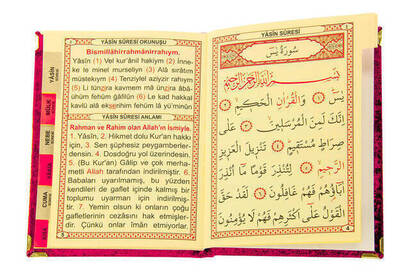 YÂSİN SÛRESİ OKUNUŞU
Bismillâhirrahmânirrahıym.
Yâsîn (1) Vel kur'ânil hakiym (2) İnne-
ke le minel murseliyn (3) Alâ sırâtım
müstekıym (4) Tenziylel aziyzir rahiym
(5) Li tünzira kavmem mâ ünzira âbâ-
ühüm fehüm gâfilûn (6) Le kad hakkal
kavlü alâ ekserihim fehüm lâ yü'minûn
YÂSİN SÛRESİ ANLAMI
Rahman ve Rahim olan Allah'ın ismiyle.
1. Yâsîn. 2. Hikmet dolu Kur'an hakkı
için, 3. Sen şüphesiz peygamberler-
densin. 4. Dosdoğru yol üzerindesin.
5. (Bu Kur'an) Gâlip ve çok merha-
metli Allah tarafından indirilmiştir. 6.
Babaları uyarılmamış, bu yüzden
kendileri de gaflet içinde kalmış bir
toplumu uyarman için indirilmiş-
tir. 7. Yemin olsun ki onların çoğu
gafletlerinin cezâsını hak etmişler-
dir. Çünkü onlar îman etmiyorlar.
YÂSİN
MÜLK
NEBE
CUMA
YÂSİN SÛRESİ
سُورَةُ يٰسٓ
بِسْمِ اللهِ الرَّحْمٰنِ الرَّحِيمِ
يٰسٓ ﴿١﴾ وَالْقُرْاٰنِ الْحَكِيمِ ﴿٢﴾
اِنَّكَ لَمِنَ الْمُرْسَلِينَ ﴿٣﴾ عَلٰى
صِرَاطٍ مُسْتَقِيمٍ ﴿٤﴾ تَنْزِيلَ الْعَزِيزِ
الرَّحِيمِ ﴿٥﴾ لِتُنْذِرَ قَوْمًا مَا اُنْذِرَ
اٰبَاؤُهُمْ فَهُمْ غَافِلُونَ ﴿٦﴾ لَقَدْ حَقَّ
الْقَوْلُ عَلٰى اَكْثَرِهِمْ فَهُمْ لَا يُؤْمِنُونَ